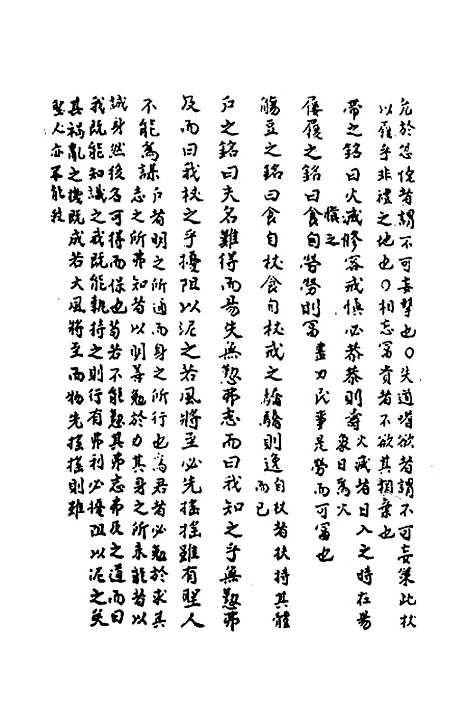 危於忿懥者謂不可妄擊也○失道嗜欲者謂不可妄策此杖
以履乎非禮之地也○相忘富貴者不欲其相棄也
帶之銘曰火滅修容戒慎必恭恭則壽火滅者日入之時在易
象日為火
屨履之銘曰慎之食自勞勞則富盡力民事是勞而可富也
觴豆之銘曰食自杖食自杖戒之驕驕則逸自杖者扶持其體
而已
戶之銘曰夫名難得而易失無懃弗志而曰我知之乎無懃弗
及而曰我杖之乎擾阻以泥之若風將至必先搖搖雖有聖人
不能為謀戶者明之所通而身之所行也為君者必勉於求其
志之所弗知者以明善勉於力其身之所未能者以
誠身然後名可得而保也苟若不能懃其弗志弗及之道而曰
我既能知識之我既能執持之則行有弗利必擾阻以泥之矣
其禍亂之機既成若大風將至而物先搖搖則雖
聖人亦不能救